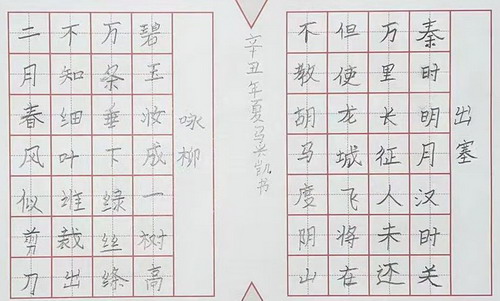 出塞
秦时明月汉时关
万里长征人未还
但使龙城飞将在
不教胡马度阴山
辛丑年夏马兴凯书
咏柳
碧玉妆成一树高
万条垂下绿丝绦
不知细叶谁裁出
二月春风似剪刀